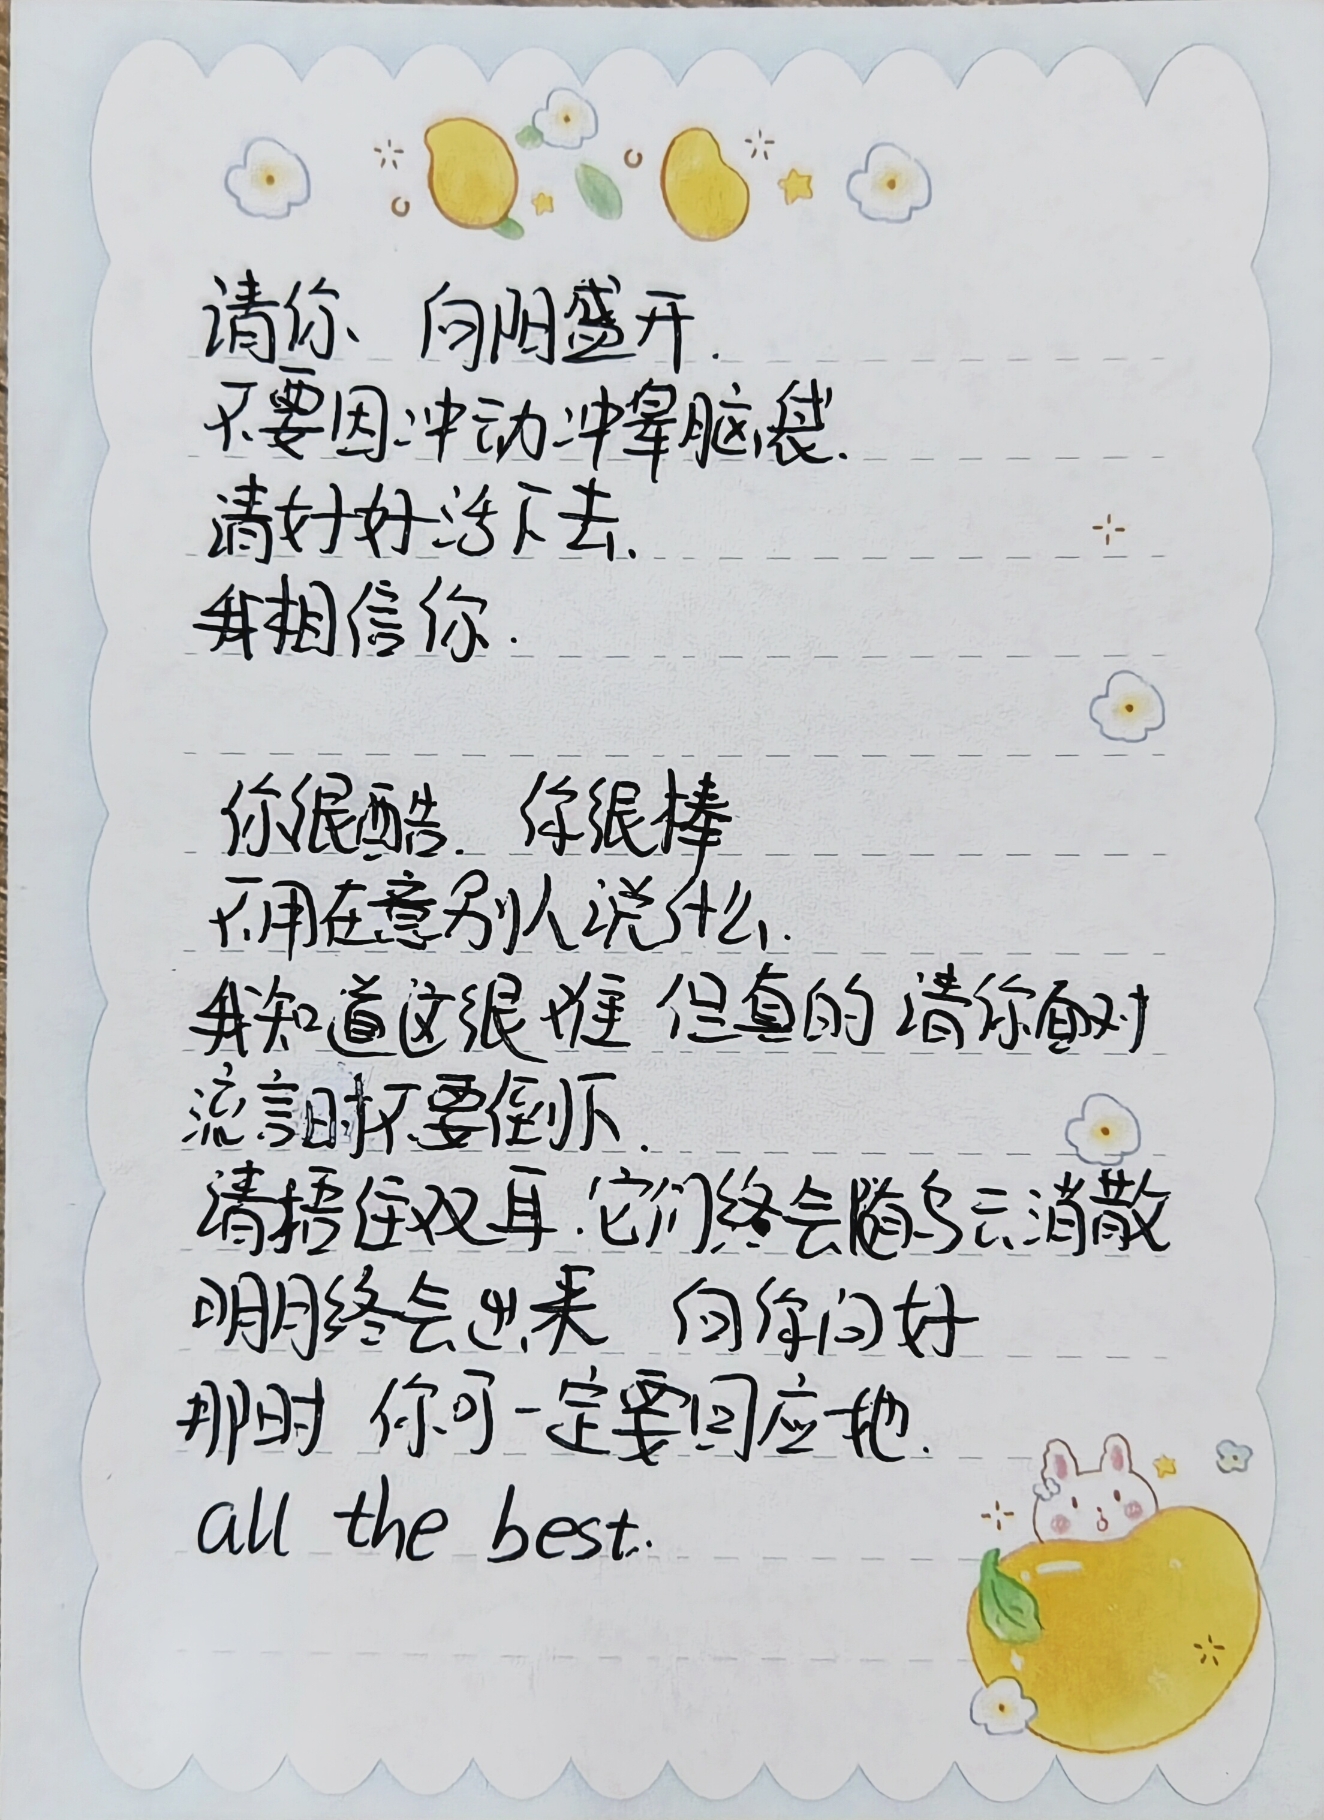 请你、向阳盛开.
不要因冲动冲晕脑袋.
请好好活下去.
我相信你.
你很酷. 你很棒
不用在意别人说什么.
我知道这很难 但真的 请你面对
流言时不要倒下.
请捂住双耳.它们终会随乌云消散
明月终会出来 向你问好
那时 你可一定要回应她.
all the best.